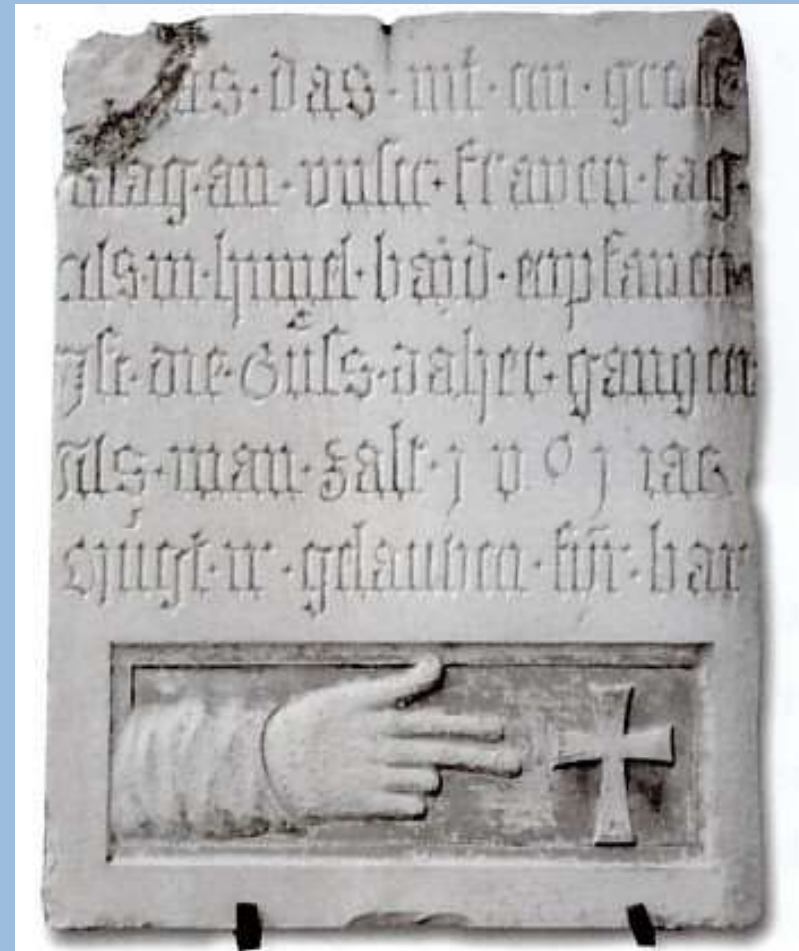 as · das · nit · ein · gros
mag · an · unser · fraven · tag ·
als · in · himel · bajd · enpfanen
Ist · die · Güss · daher · gangen
Als · man · zalt · j v 0 j iar
mügt · ir · gelauben · für · bar